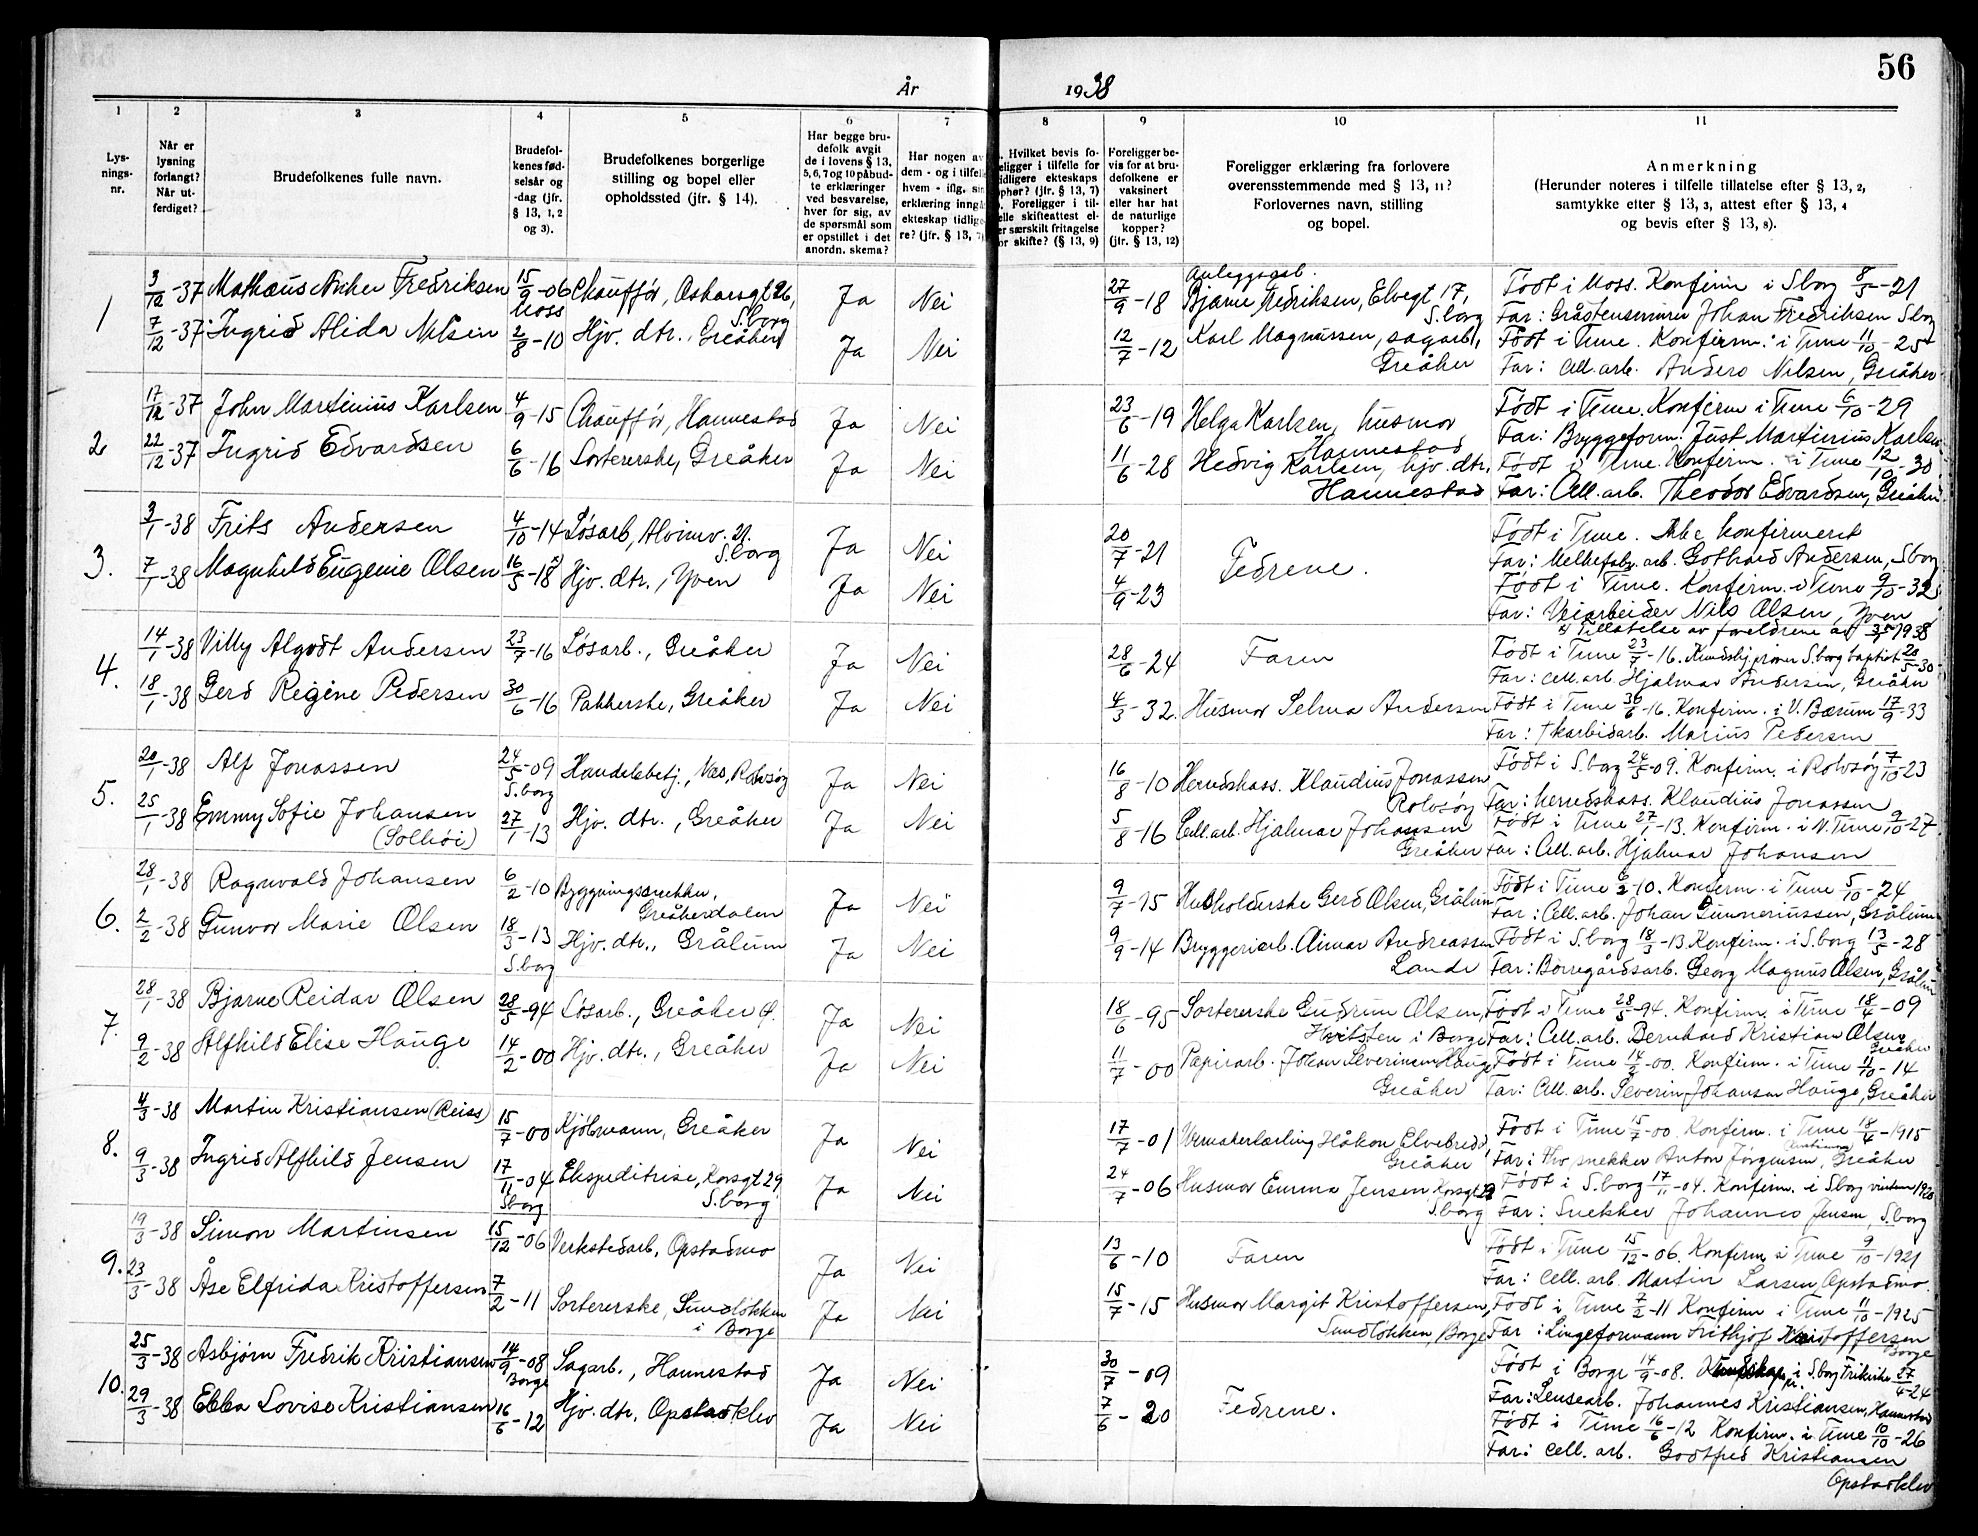 56
År 1938
1
2
3
4
5
6
7
8
9
10
11
Lys-
nings-
nr.
Når er
lysning
forlangt?
Når ut-
ferdiget?
Brudefolkenes fulle navn.
Brudefol-
kenes fød-
selsår og
-dag (jfr.
§ 13, 1, 2
og 3).
Brudefolkenes borgerlige
stilling og bopel eller
opholdssted (jfr. § 14).
Har begge bru-
defolk avgit
de i lovens § 13,
5, 6, 7 og 10 påbud-
te erklæringer
ved besvarelse,
hver for sig, av
de spørsmål som
er opstillet i det
anordn. skema?
Har nogen av
dem - og i tilfelle
hvem - iflg. sin
erklæring inngå
ekteskap tidlige
re? (jfr. § 13, 7)
. Hvilket bevis fo-
eligger i tilfelle for
idligere ekteskaps
ophør? (jfr. § 13, 7)
. Foreligger i til-
elle skifteattest el-
er særskilt fritagelse
or skifte? (§ 13, 9)
Foreligger be-
vis for at bru-
defolkene er
vaksinert
eller har hat
de naturlige
kopper?
(jfr. § 13, 12)
Foreligger erklæring fra forlovere
overensstemmende med § 13, 11?
Forlovernes navn, stilling
og bopel.
Anmerkning
(Herunder noteres i tilfelle tillatelse efter § 13, 2,
samtykke efter § 13, 3, attest efter § 13, 4
og bevis efter § 13, 8).
1
3/12-37 Mathæus Anker Fredriksen 15/9-06 Moss Chauffør, Oskarsgt 26, S.borg Ja Nei
27/9-18 Anleggsarb. Bjarne Fredriksen, Elvegt 17, S.borg Født i Moss. Konfirm i Sborg 8/5-21
Far: Gråstensminer Johan Fredriksen Sborg
7/12-37 Ingrid Alida Nilsen 2/8-10 Hjv. dtr., Greåker Ja Nei
12/7-12 Karl Magnussen, sagarb, Greåker Født i Tune. Konfirm. i Tune 11/10-25
Far: Cell. arb. Anders Nilsen, Greåker
2
17/12-37 John Martinius Karlsen 4/9-15 Chauffør, Hannestad Ja Nei
23/6-19 Helga Karlsen, husmor Hannestad Født i Tune. Konfirm i Tune 6/10-29
Far: Bryggeform. Just Martinius Karlsen
22/12-37 Ingrid Edvardsen 6/6-16 Sortererske, Greåker Ja Nei
11/6-28 Hedvig Karlsen, hjv. dtr, Hannestad Født i Tune. Konfirm. i Tune 12/10-30
Far: Cell. arb. Theodor Edvardsen, Greåker
3.
3/1-38 Frits Andersen 4/10-14 Løsarb, Alvimv. 21. S.borg Ja Nei
20/7-21 Fedrene. Født i Tune. Ikke konfirmeret
Far: Melkefabr. arb. Gothard Andersen, Sborg
7/1-38 Magnhild Eugenie Olsen 16/5-18 x) Hjv. dtr., Yven Ja Nei
4/9-23 Født i Tune. Konfirm. i Tune 9/10-32
Far: Veiarbeider Nils Olsen, Yven
x) Tillatelse av foreldrene av 3/1-1938
4.
14/1-38 Villy Algodt Andersen 23/7-16 Løsarb., Greåker Ja Nei
28/6-24 Faren Født i Tune 23/7-16. Kundskj.prøver S.borg baptist 20/5-30
Far: cell. arb. Hjalmar Andersen, Greåker
18/1-38 Gerd Regine Pedersen 30/6-16 Pakkerske, Greåker Ja Nei
4/3-32. Husmor Selma Andersen Født i Tune 30/6-16. Konfirm. i V. Bærum 17/9-33
Far: † karbidarb. Marius Pedersen
5.
20/1-38 Alf Jonassen 24/5-09 S.borg Handelsbetj., Nes, Rolvsøy Ja Nei
16/8-10 Herredskass. Klaudius Jonassen Rolvsøy Født i S.borg 24/5-09. Konfirm. i Rolvsøy 7/10-23
Far: herredskass. Klaudius Jonassen
25/1-38 Emmy Sofie Johansen (Solhøi) 27/1-13 Hjv. dtr., Greåker Ja Nei
5/8-16 Cell. arb. Hjalmar Johansen Greåker Født i Tune 27/1-13. Konfirm. i N. Tune 9/10-27
Far: Cell. arb. Hjalmar Johansen
6.
28/1-38 Ragnvald Johansen 6/2-10 Bygningssnekker, Greåkerdalen Ja Nei
9/7-15 Husholderske Gerd Olsen, Grålum Født i Tune 6/2-10. Konfirm. i Tune 5/10-24
Far: Cell. arb. Johan Gunneriussen, Grålum
2/2-38 Gunvor Marie Olsen 18/3-13 S.borg Hjv. dtr., Grålum Ja Nei
9/9-14 Bryggeriarb. Einar Andreassen Lande Født i S.borg 18/3-13. Konfirm. i S.borg 13/5-28
Far: Borregårdsarb. Georg Magnus Olsen, Grålum
7.
28/1-38 Bjarne Reidar Olsen 28/5-94 Løsarb., Greåker Ja Nei
18/6-95 Sortererske Gudrun Olsen, Hvitsten i Borge Født i Tune 28/5-94. Konfirm. i Tune 18/4-09
Far: Cell. arb. Bernhard Kristian Olsen Greåker
9/2-38 Alfhild Elise Hauge 14/2-00 Hjv. dtr., Greåker Ja Nei
11/7-00 Papirarb. Johan Severinsen Hauge Greåker Født i Tune 14/2-00. Konfirm. i Tune 11/10-14
Far: Cell. arb. Severin Johansen Hauge, Greåker
8.
4/3-38 Martin Kristiansen (Reiss) 15/7-00 Kjøbmann, Greåker Ja Nei
17/7-01 Urmakerlærling Håkon Elvebredd, Greåker Født i Tune 15/7-00. Konfirm. i Tune 18/4-1915
Far: Hv. snekker Anton Jørgensen, Greåker
9/3-38 Ingrid Alfhild Jensen 17/11-04 Sborg Ekspeditrise, Korsgt 29 S.borg Ja Nei
24/7-06 Husmor Emma Jensen Korsgt 29 S.borg Født i S.borg 17/11-04. Konfirm. i S.borg vinteren 1920
Far: Snekker Johannes Jensen, S.borg
9.
19/3-38 Simon Martinsen 15/12-06 Verkstedarb, Opstadmo Ja Nei
13/6-10 Faren Født i Tune 15/12-06. Konfirm i Tune 9/10-1921
Far: Cell. arb. Martin Larsen, Opstadmo.
23/3-38 Åse Elfrida Kristoffersen 7/2-11 Sortererske, Sundløkken i Borge Ja Nei
15/7-15 Husmor Margit Kristoffersen, Sundløkken, Borge Født i Tune 7/2-11 Konfirm i Tune 11/10-1925
Far: Lingeformann Frithjof Kristoffersen Borge
10.
25/3-38 Asbjørn Fredrik Kristiansen 14/9-08 Borge Sagarb., Hannestad Ja Nei
30/7-09 Fedrene. Født i Borge 14/9-08. i S.borg Frikirke 27/4-24
Far: Lensearb. Johannes Kristiansen, Hannestad
29/3-38 Ebba Lovise Kristiansen 16/6-12 Hjv. dtr, Opstadklev Ja Nei
7/6-20 Født i Tune 16/6-12 Konfirm. i Tune 10/10-26
Far: cell. arb. Godtfred Kristiansen
Opstadklev